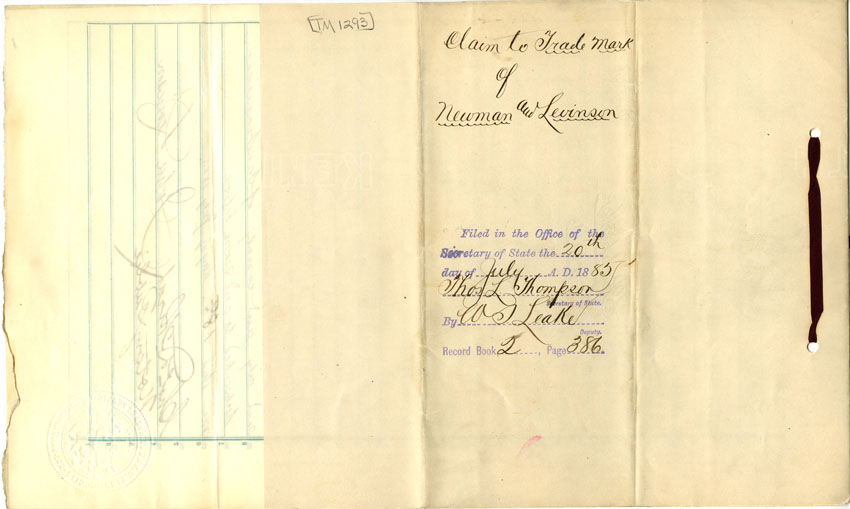 [TM 1293]
Claim to Trade Mark
of
Newman and Levinson
Filed in the Office of the
Secretary of State the 20th
day of July A. D. 1885
Thos L. Thompson
Secretary of State.
By W S Leake
Deputy.
Record Book 2, Page 386.